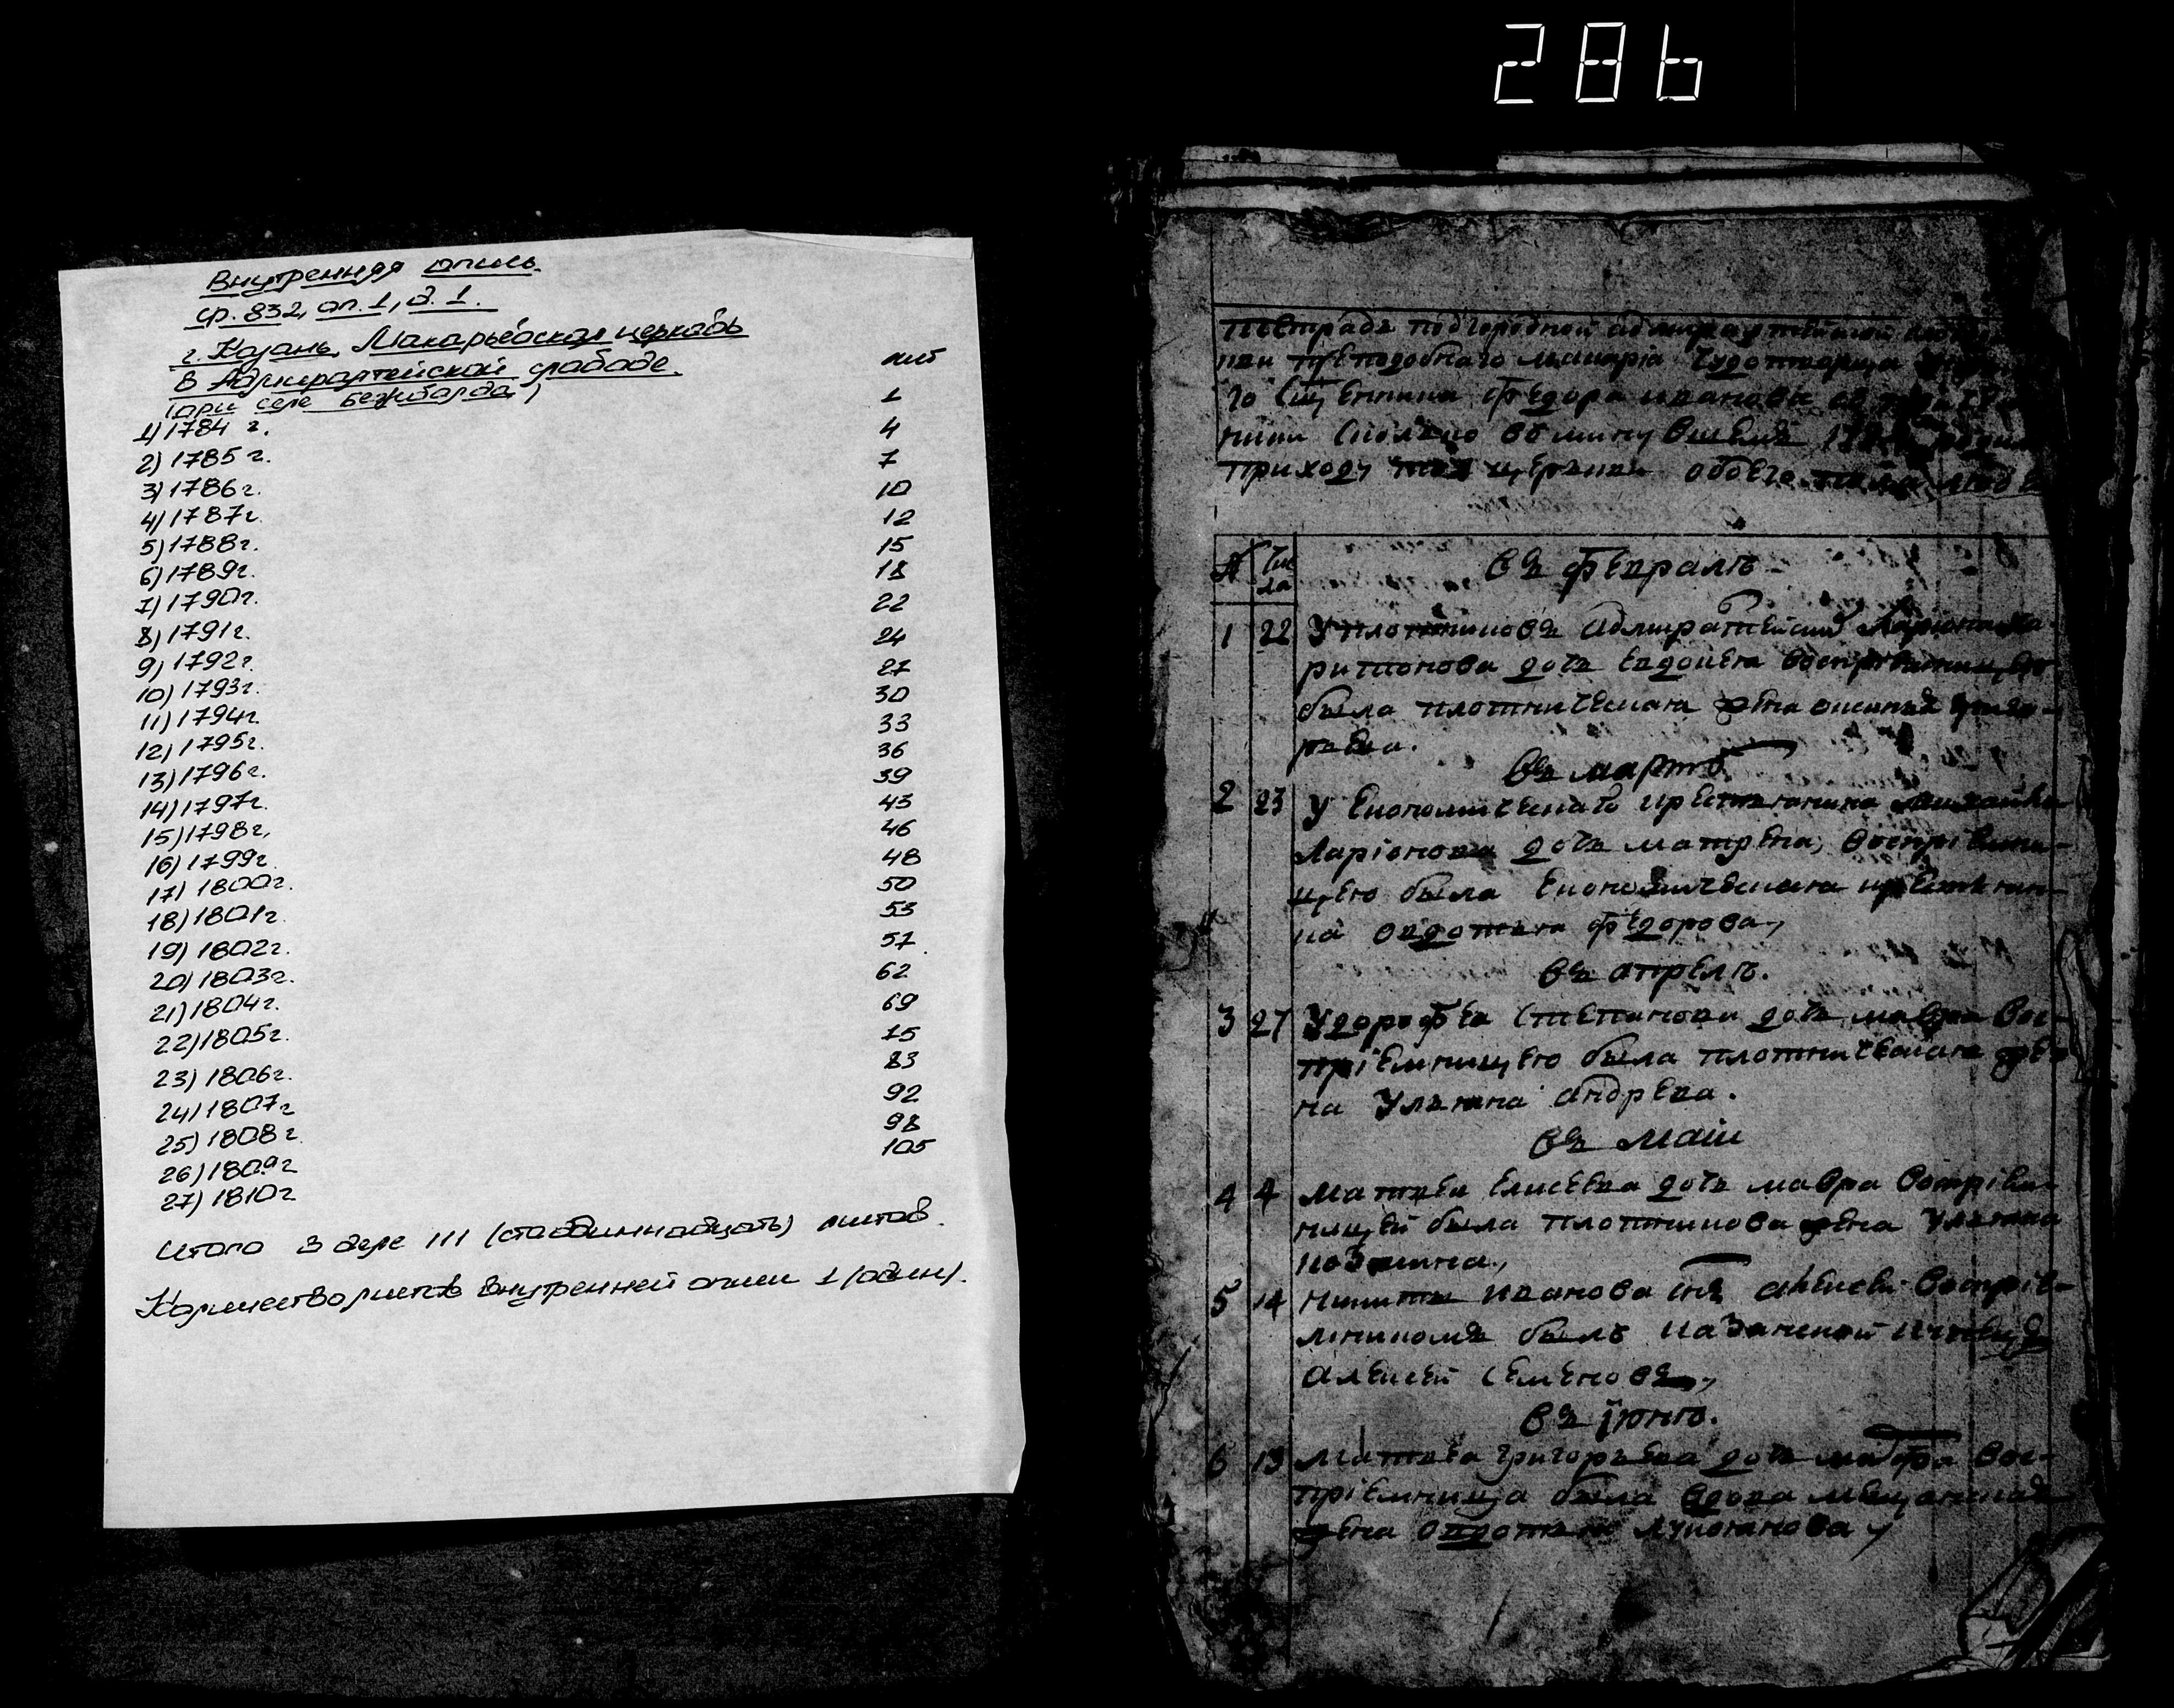 286
Внутренняя опись
ф. 832, оп. 1, д. 1.
г. Казань, Макарьевская церковь
в Адмиралтейской слободе.
(при селе Бежболда)
лист
1) 1784 г. 1
2) 1785 г. 4
3) 1786 г. 7
4) 1787 г. 10
5) 1788 г. 12
6) 1789 г. 15
7) 1790 г. 18
8) 1791 г. 22
9) 1792 г. 24
10) 1793 г. 27
11) 1794 г. 30
12) 1795 г. 33
13) 1796 г. 36
14) 1797 г. 39
15) 1798 г. 43
16) 1799 г. 46
17) 1800 г. 48
18) 1801 г. 50
19) 1802 г. 53
20) 1803 г. 57
21) 1804 г. 62
22) 1805 г. 69
23) 1806 г. 75
24) 1807 г. 83
25) 1808 г. 92
26) 1809 г. 98
27) 1810 г. 105
Итого в деле 111 (стоодиннадцать) листов.
Количество листов внутренней описи 1 (один).
тетрадь подгородной адмиралтейской
преподобнаго макаріа Чудотворца
го Священника федора иванова
приходу тоя церкви обоего
№ Числа въ февралѣ
1 22 У плотникова адмиралтейской Ларіона Ха-
ритонова дочь Евдокея воспріемницею
была плотническая жена
рьева.
въ мартѣ
2 23 У Економическаго крестьянина михайла
Ларіонова дочь матрена, воспріемни-
цею была Економическаго крестьяни-
на авдотья федорова,
въ апрелѣ.
3 27 У дорофеа Степанова дочь мавра Вос-
пріемницею была плотническая же-
на Ульяна андреева.
въ маіи
4 4 Матвеа Елисеева дочь мавра Вопріем-
ницей была плотникова жена Ульяна
козмина,
5 14 никиты иванова снъ алексей Вопріе-
мникомъ былъ казанской
алексей Семеновъ,
въ іюнѣ.
6 13 Матвеа григорьева дочь марфа Вос-
пріемница была вдова мещанская
жена авдотья лукоянова,